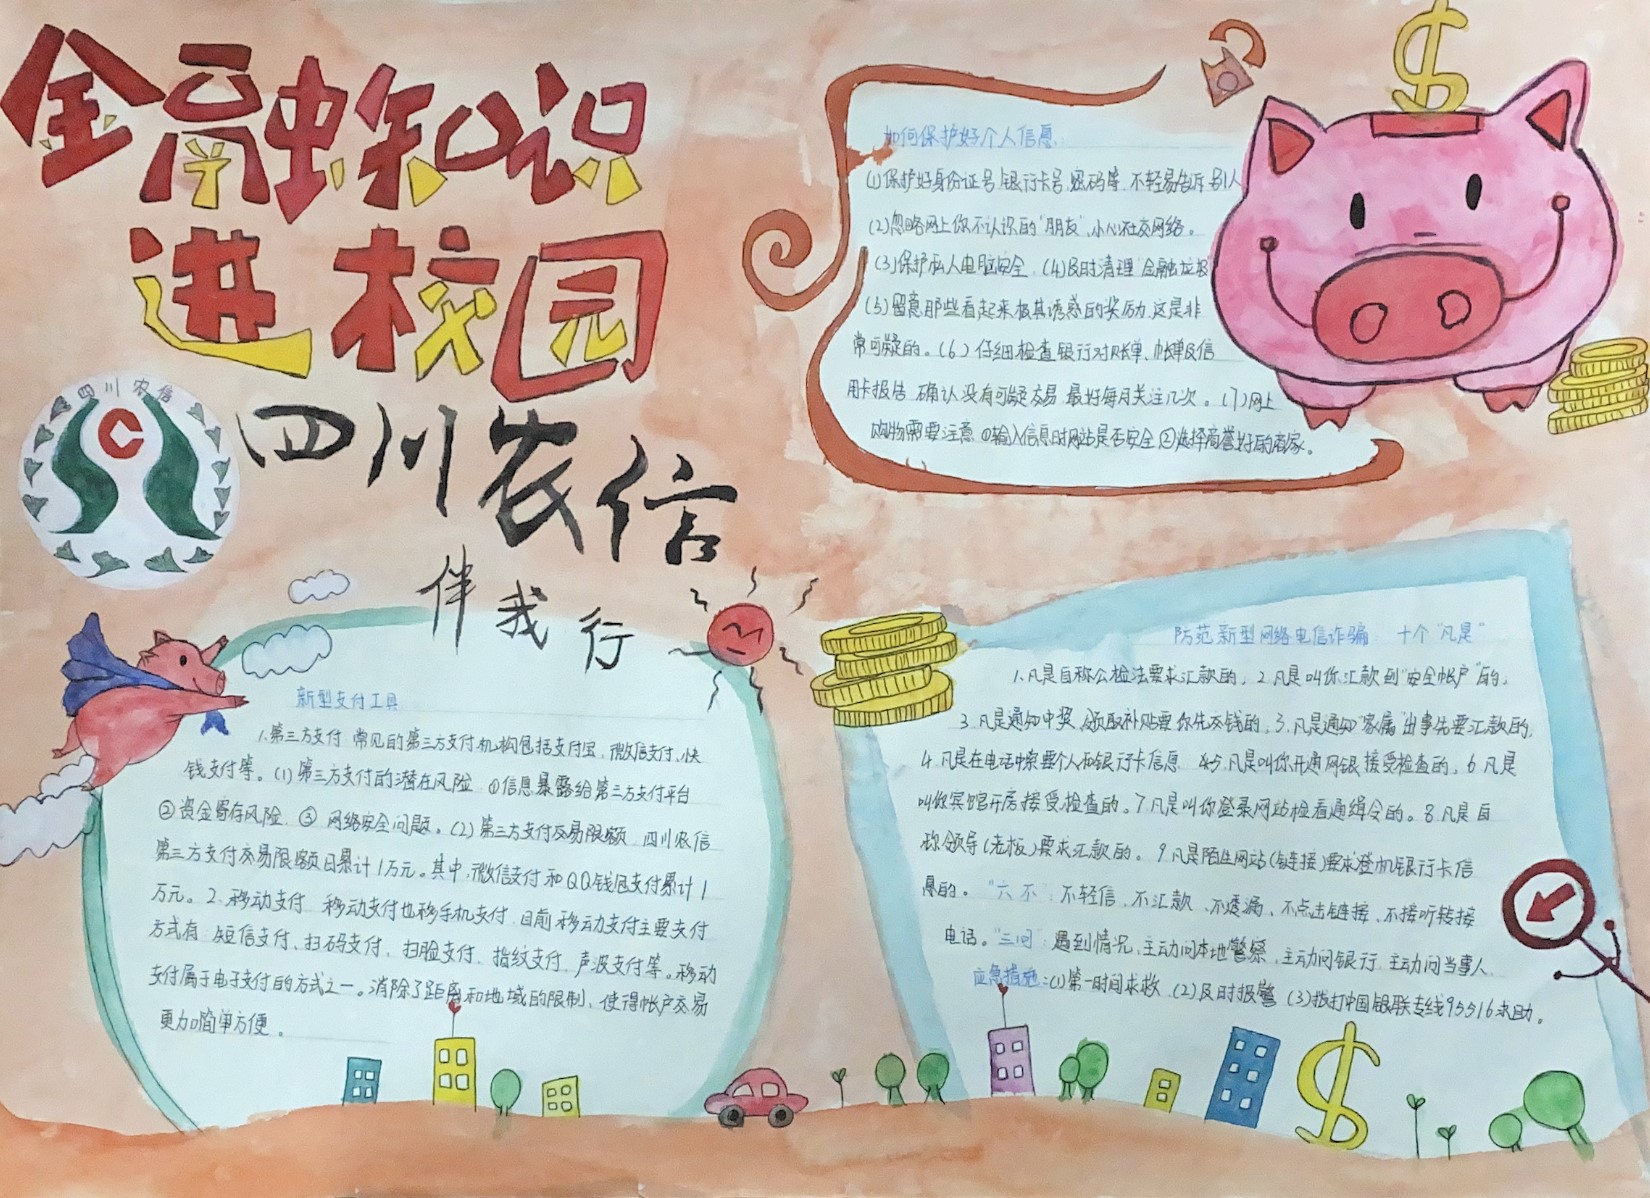 金融知识
进校园
四川农信
四川农信
伴我行
如何保护好个人信息:
(1)保护好身份证号、银行卡号、密码等,不轻易告诉别人
(2)忽略网上你不认识的“朋友”,小心社交网络。
(3)保护私人电脑安全、(4)及时清理“金融垃圾
(5)留意那些看起来极其诱惑的奖励,这是非
常可疑的。(6)仔细检查银行对账单、帐单及信
用卡报告,确认没有可疑交易,最好每月关注几次。(7)网上
购物需要注意①输入信息时网站是否安全②选择商誉好的商家。
新型支付工具
1.第三方支付,常见的第三方支付机构包括支付宝、微信支付、快
钱支付等。(1)第三方支付的潜在风险,①信息暴露给第三方支付平台
②资金寄存风险,③网络安全问题。(2)第三方支付交易限额,四川农信
第三方支付交易限额日累计1万元。其中,微信支付和QQ钱包支付累计1
万元。2.移动支付,移动支付也称手机支付,目前移动支付主要支付
方式有:短信支付、扫码支付、扫脸支付、指纹支付、声波支付等。移动
支付属于电子支付的方式之一。消除了距离和地域的限制,使得帐户交易
更加简单方便。
防范新型网络电信诈骗:十个“凡是”
1.凡是自称公检法要求汇款的,2.凡是叫你汇款到“安全帐户”的,
3.凡是通知中奖、领取补贴要你先交钱的,3.凡是通知“家属”出事先要汇款的,
4.凡是在电话中索要个人和银行卡信息 5.凡是叫你开通网银接受检查的,6.凡是
叫你宾馆开房接受检查的。7.凡是叫你登录网站检看通缉令的。8.凡是自
称领导(老板)要求汇款的。9.凡是陌生网站(链接)要求登机银行卡信
息的。“六不”:不轻信、不汇款、不透漏、不点击链接、不接听转接
电话。“三问”:遇到情况,主动问本地警察,主动问银行,主动问当事人.
应急措施:(1)第一时间求救、(2)及时报警(3)拨打中国银联专线95516求助。